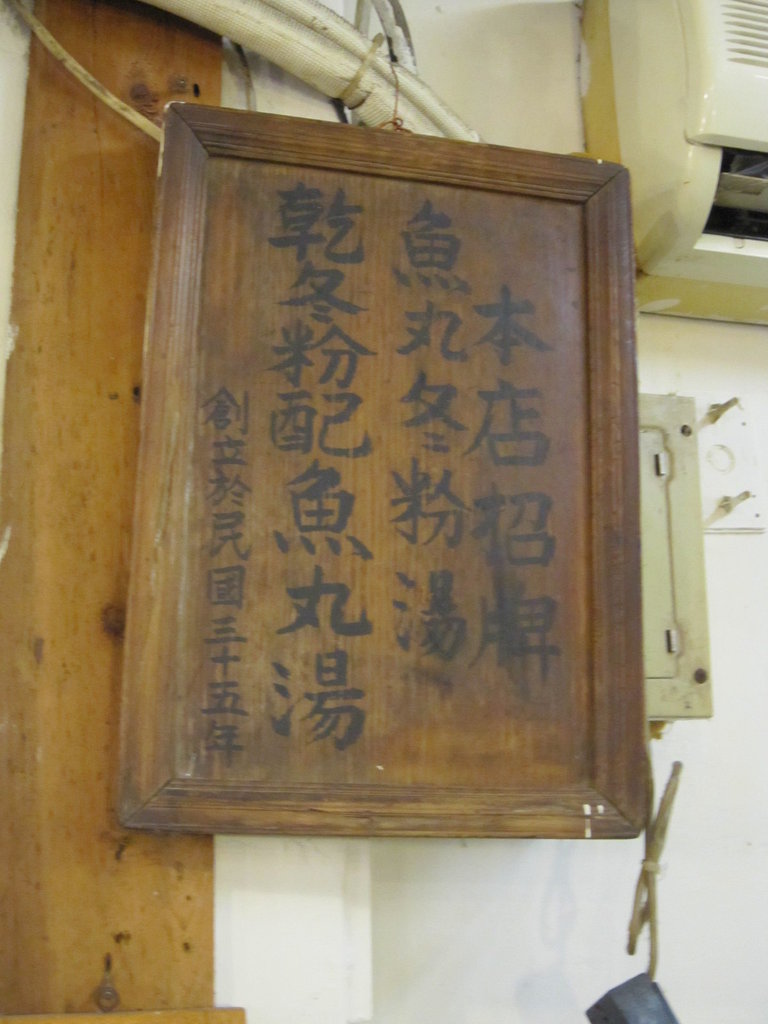 本店招牌
魚丸冬粉湯
乾冬粉配魚丸湯
創立於民國三十五年